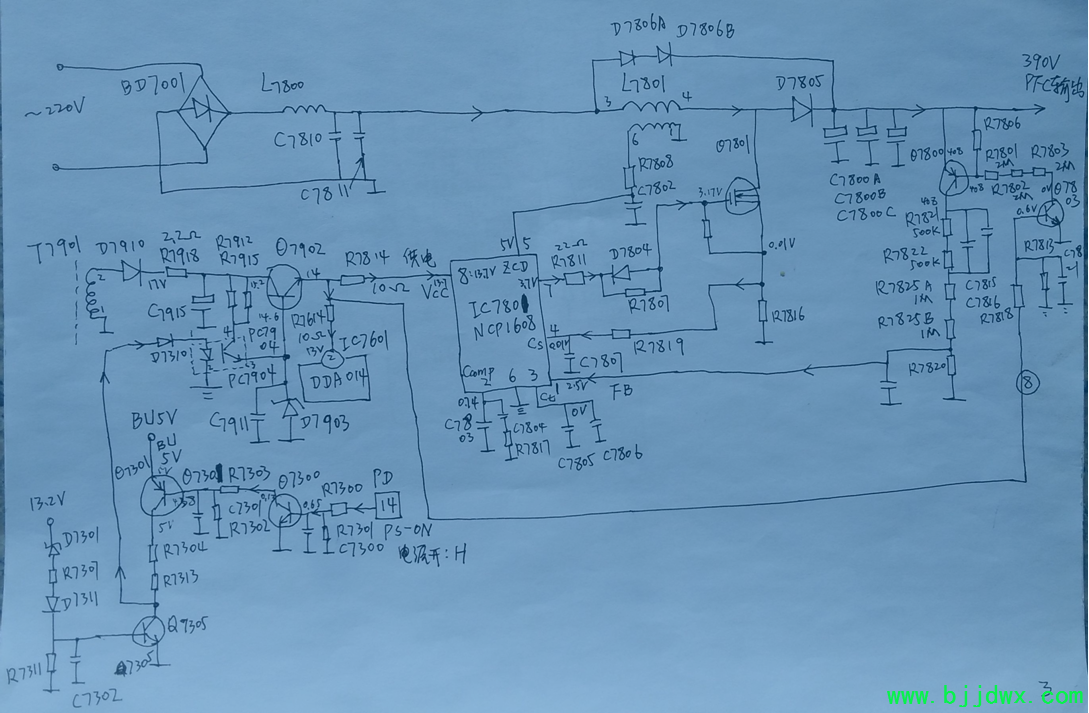 D7806A D7806B
390V
PFC输出
BD7001
L7800
L7801
3 4
D7805
~220V
C7810
C7811
6
R7808
C7802
Q7801
C7800A
C7800B
C7800C
Q7800
408
408
R7806
R7801
2M
R7802
2M
R7803
2M
0V
Q78
03
0.6V
T7901
D7910
2.2Ω
R7918
R7912
R7915
Q7902
R7814
供电
10Ω
VCC
13.7
8:13.7V
ZCD
5V 5
3.17V
3.7V
22Ω
R7811
D7804
R7807
0.01V
408
R7821
500K
R7822
500K
R7825A
1M
R7825B
1M
C7815
C7816
R7813
R7818
2
1
17V
C7915
14
14.6
R7614
10Ω
13V
IC7601
2
DDA014
IC7801
NCP1608
Cs
4
R7819
R7816
C7807
D7310
PC79
04
PC7904
Comp
2
6 3
Ct
1
2.5V
FB
R7820
8
C7911
D7903
C78
03
C7804
R7817
0V
C7805
C7806
BU5V
BU
5V
Q7301
R7303
Q7300
R7300
PD
14
13.2V
C7301
R7302
0.65
R7301
C7300
PS-ON
电源开:H
5V
D7301
R7304
R7307
R7313
D7311
Q7305
R7311
C7302
3
www.bjjdwx.com